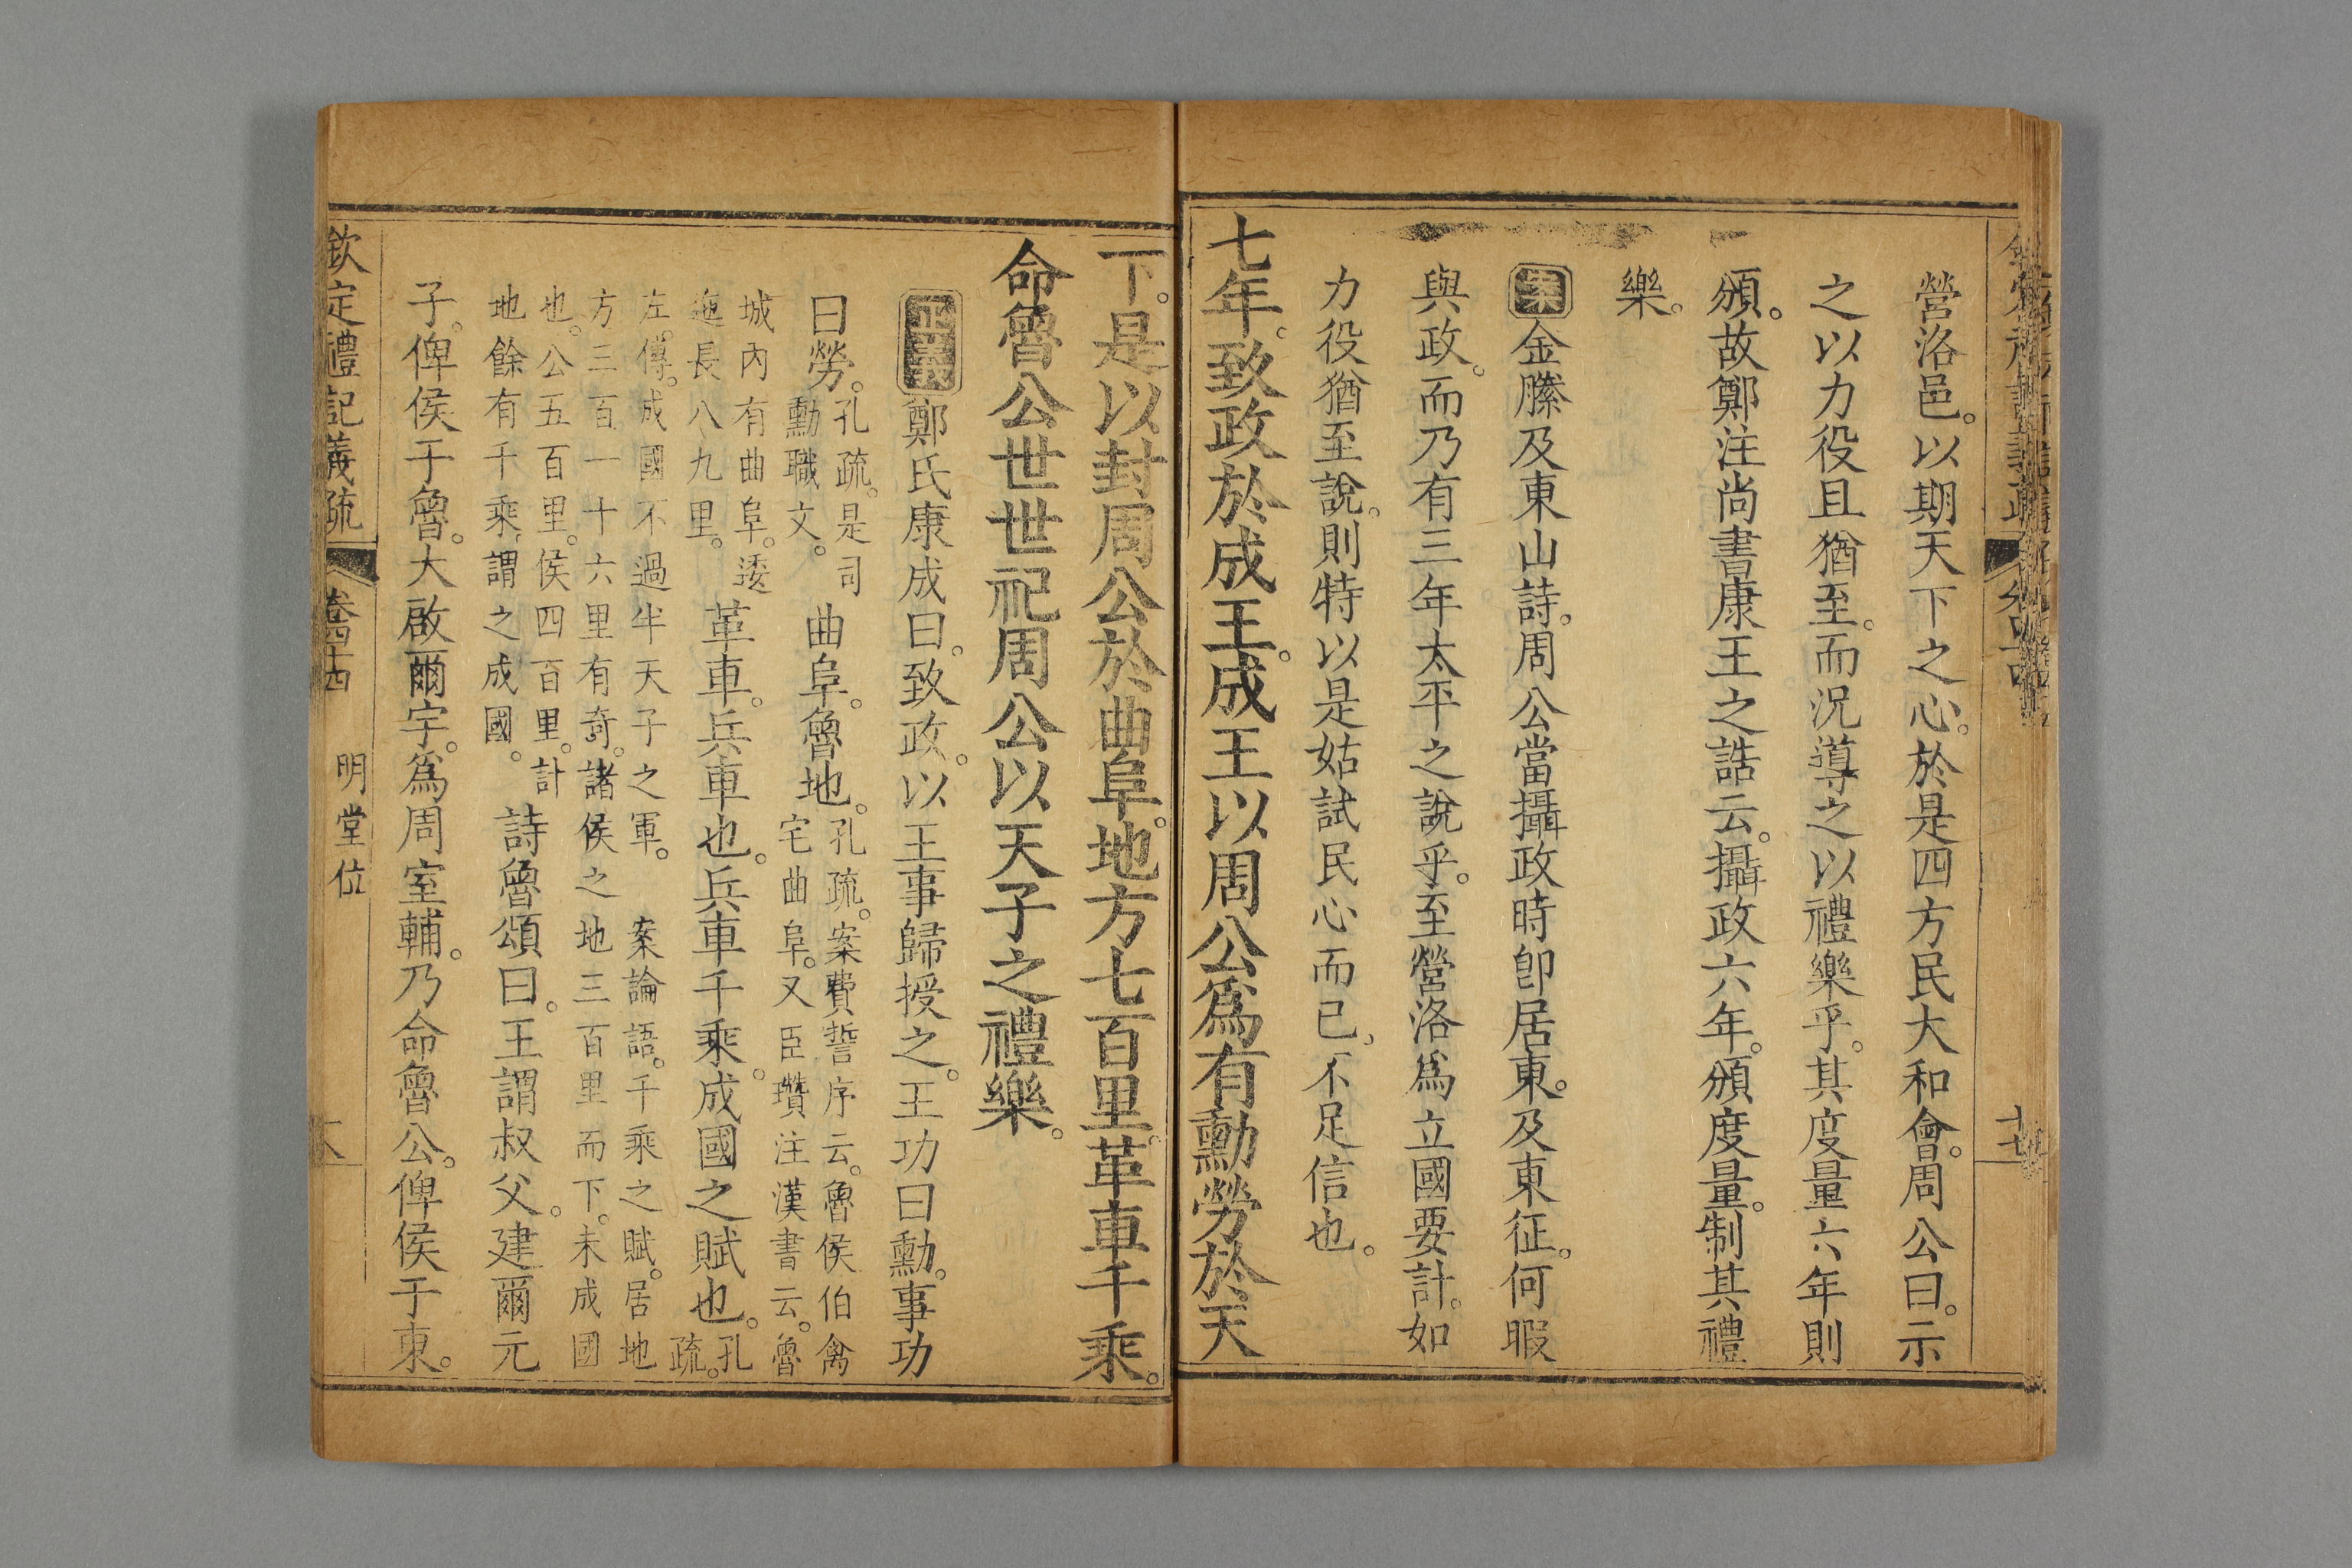 營洛邑。以期天下之心。於是四方民大和會。周公曰。示
之以力役且猶至。而況導之以禮樂乎。其度量六年則
頒。故鄭注尚書康王之誥云。攝政六年。頒度量。制其禮
樂。
案金縢及東山詩。周公當攝政時卽居東。及東征。何暇
與政。而乃有三年太平之說乎。至營洛爲立國要計。如
力役猶至說。則特以是姑試民心而已、不足信也。
七年。致政於成王。成王以周公爲有勳勞於天
下。是以封周公於曲阜。地方七百里。革車千乘。
命魯公世世祀周公以天子之禮樂。
正義鄭氏康成曰。致政。以王事歸授之。王功曰勳。事功
曰勞。孔疏。是司勳職文。曲阜。魯地。孔疏。案費誓序云。魯侯伯禽宅曲阜。又臣瓚注漢書云。魯
城內有曲阜。逶迤長八九里。革車。兵車也。兵車千乘。成國之賦也。孔疏。
左傳。成國不過半天子之軍。案論語。千乘之賦。居地
方三百一十六里有奇。諸侯之地三百里而下。未成國
也。公五百里。侯四百里。計
地餘有千乘。謂之成國。詩魯頌曰。王謂叔父。建爾元
子。俾侯于魯。大啟爾宇。爲周室輔。乃命魯公。俾侯于東。
欽定禮記義疏 卷四十四 明堂位